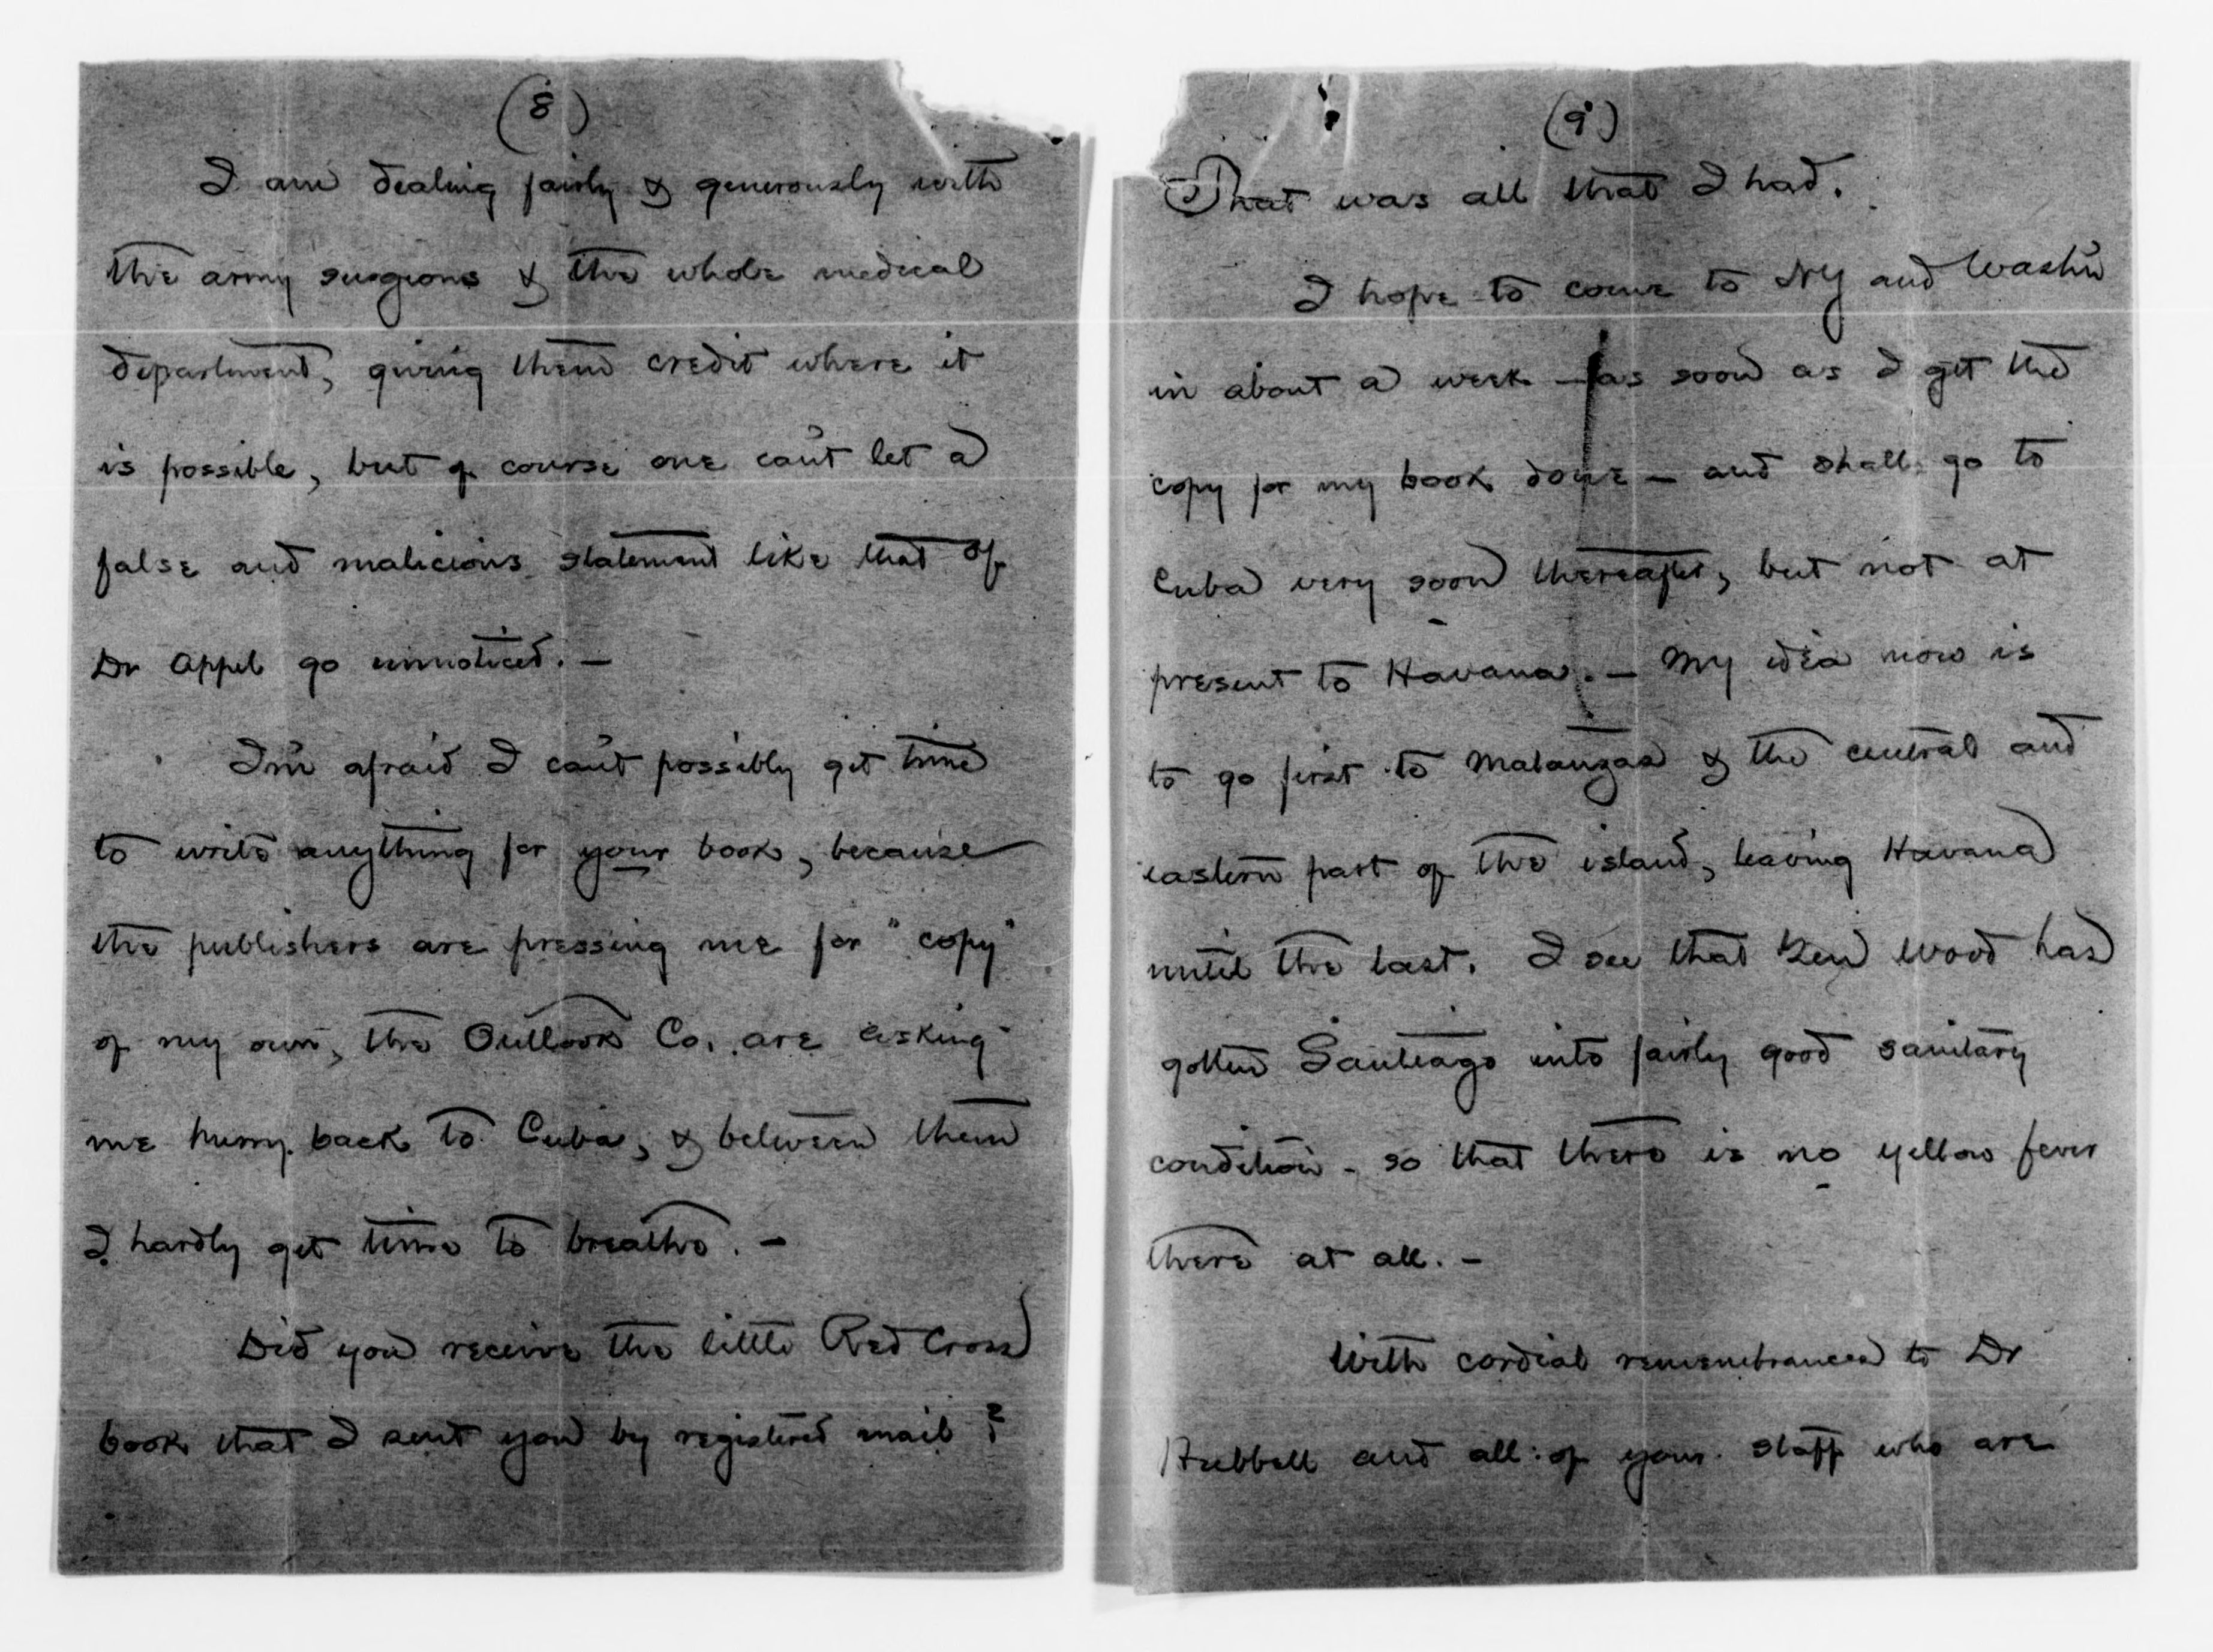 (8)
I am dealing fairly & generously with
the army surgeons & the whole medical
department, giving them credit where it
is possible, but of course one can't let a
false and malicious statement like that of
Dr Appel go unnoticed. —
I'm afraid I can't possibly get time
to write anything for your book, because
the publishers are pressing me for "copy"
of my own, the Outlook Co. are asking
me hurry back to Cuba, & between them
I hardly get time to breathe. —
Did you receive the little Red Cross
book that I sent you by registered mail?
(9)
That was all that I had.
I hope to come to NY and Washn
in about a week — as soon as I get the
copy for my book done — and shall go to
Cuba very soon thereafter, but not at
present to Havana. — My idea now is
to go first to Matanzas & the central and
eastern part of the island, leaving Havana
until the last. I see that Gen Wood has
gotten Santiago into fairly good sanitary
condition - so that there is no yellow fever
there at all. —
With cordial remembrances to Dr
Hubbell and all of your staff who are